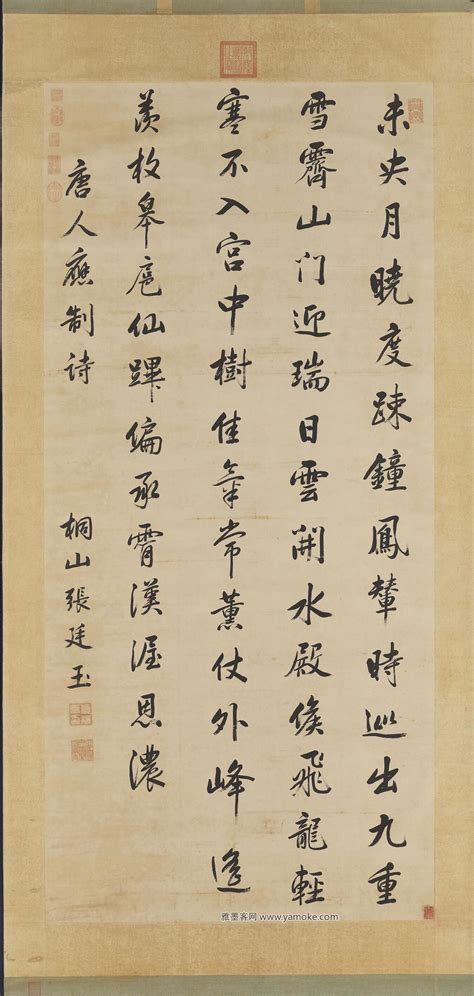 未央月曉度疎鐘鳳輦時巡出九重
雪霽山門迎瑞日雲開水殿候飛龍輕
寒不入宮中樹佳氣常薰仗外峰遙
羨枚皋扈仙蹕偏承霄漢渥恩濃
唐人應制詩
桐山張廷玉
雅墨客网 www.yamoke.com